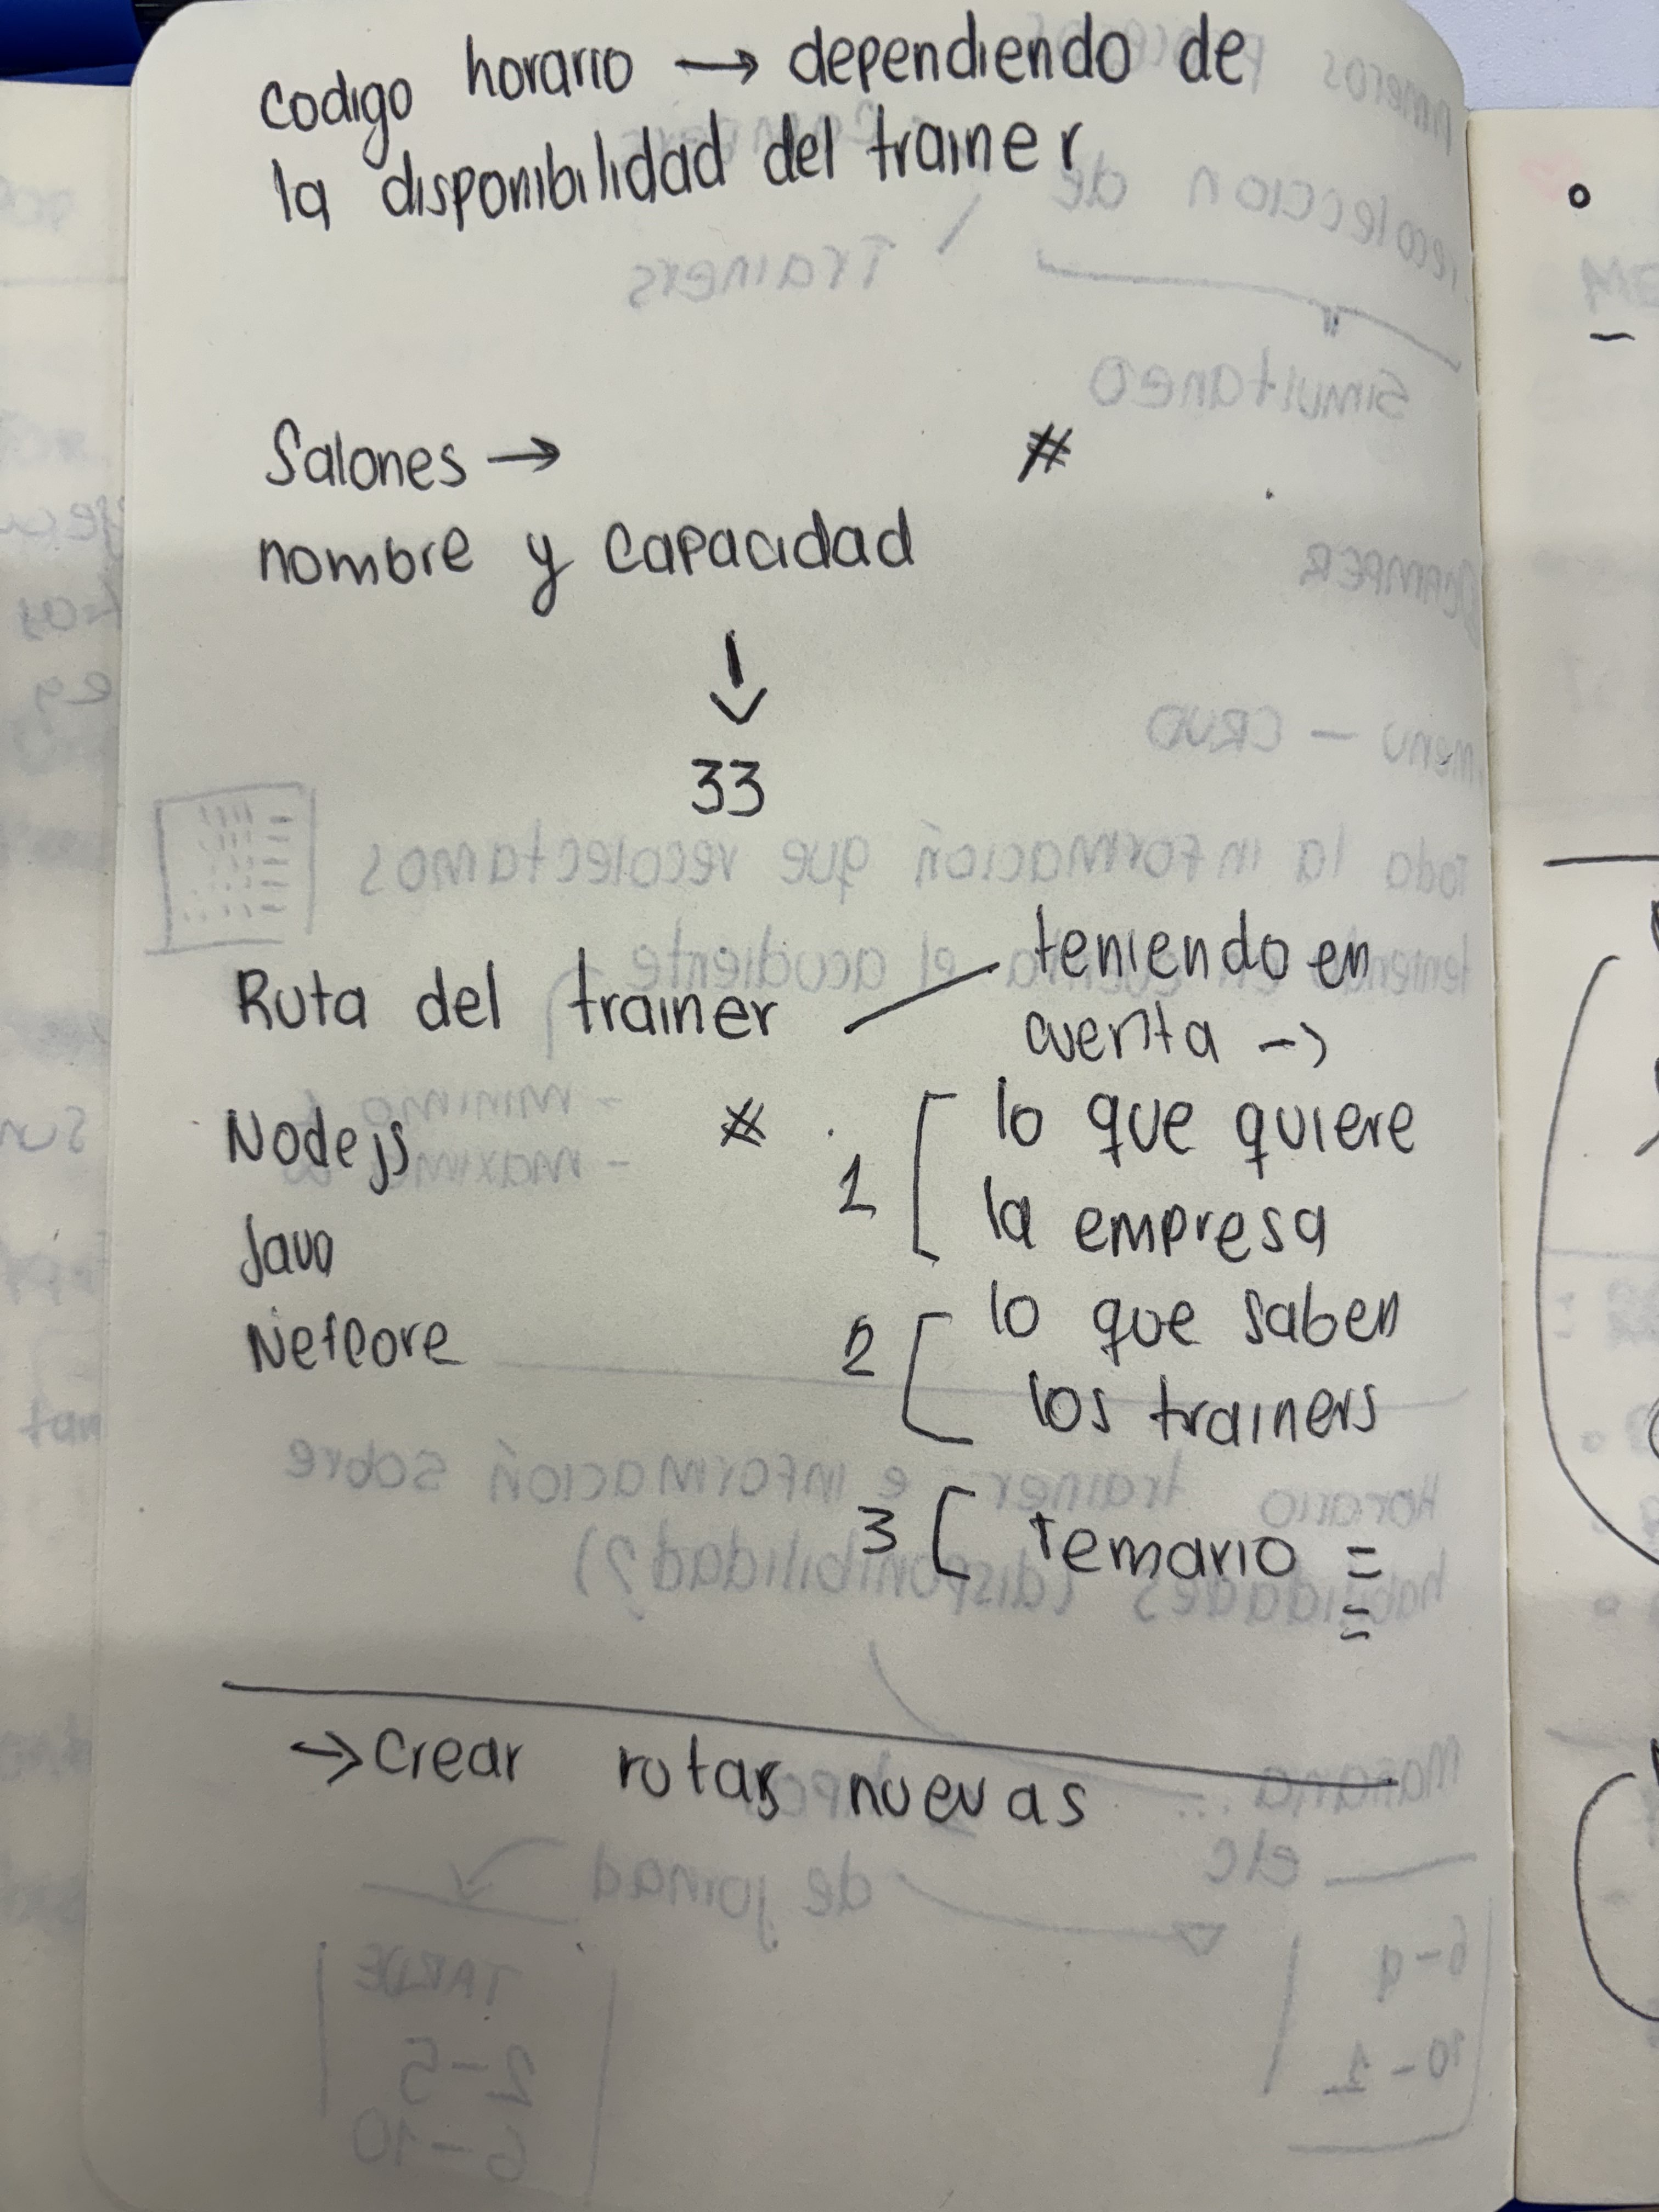 codigo horario → dependiendo de
la disponibilidad del trainer
Salones → #
nombre y capacidad
↓
33
Ruta del trainer — teniendo en
cuenta →
Nodejs # 1 [ lo que quiere
la empresa
Java
Netcore 2 [ lo que saben
los trainers
3 [ temario =
=
→ Crear rutas nuevas